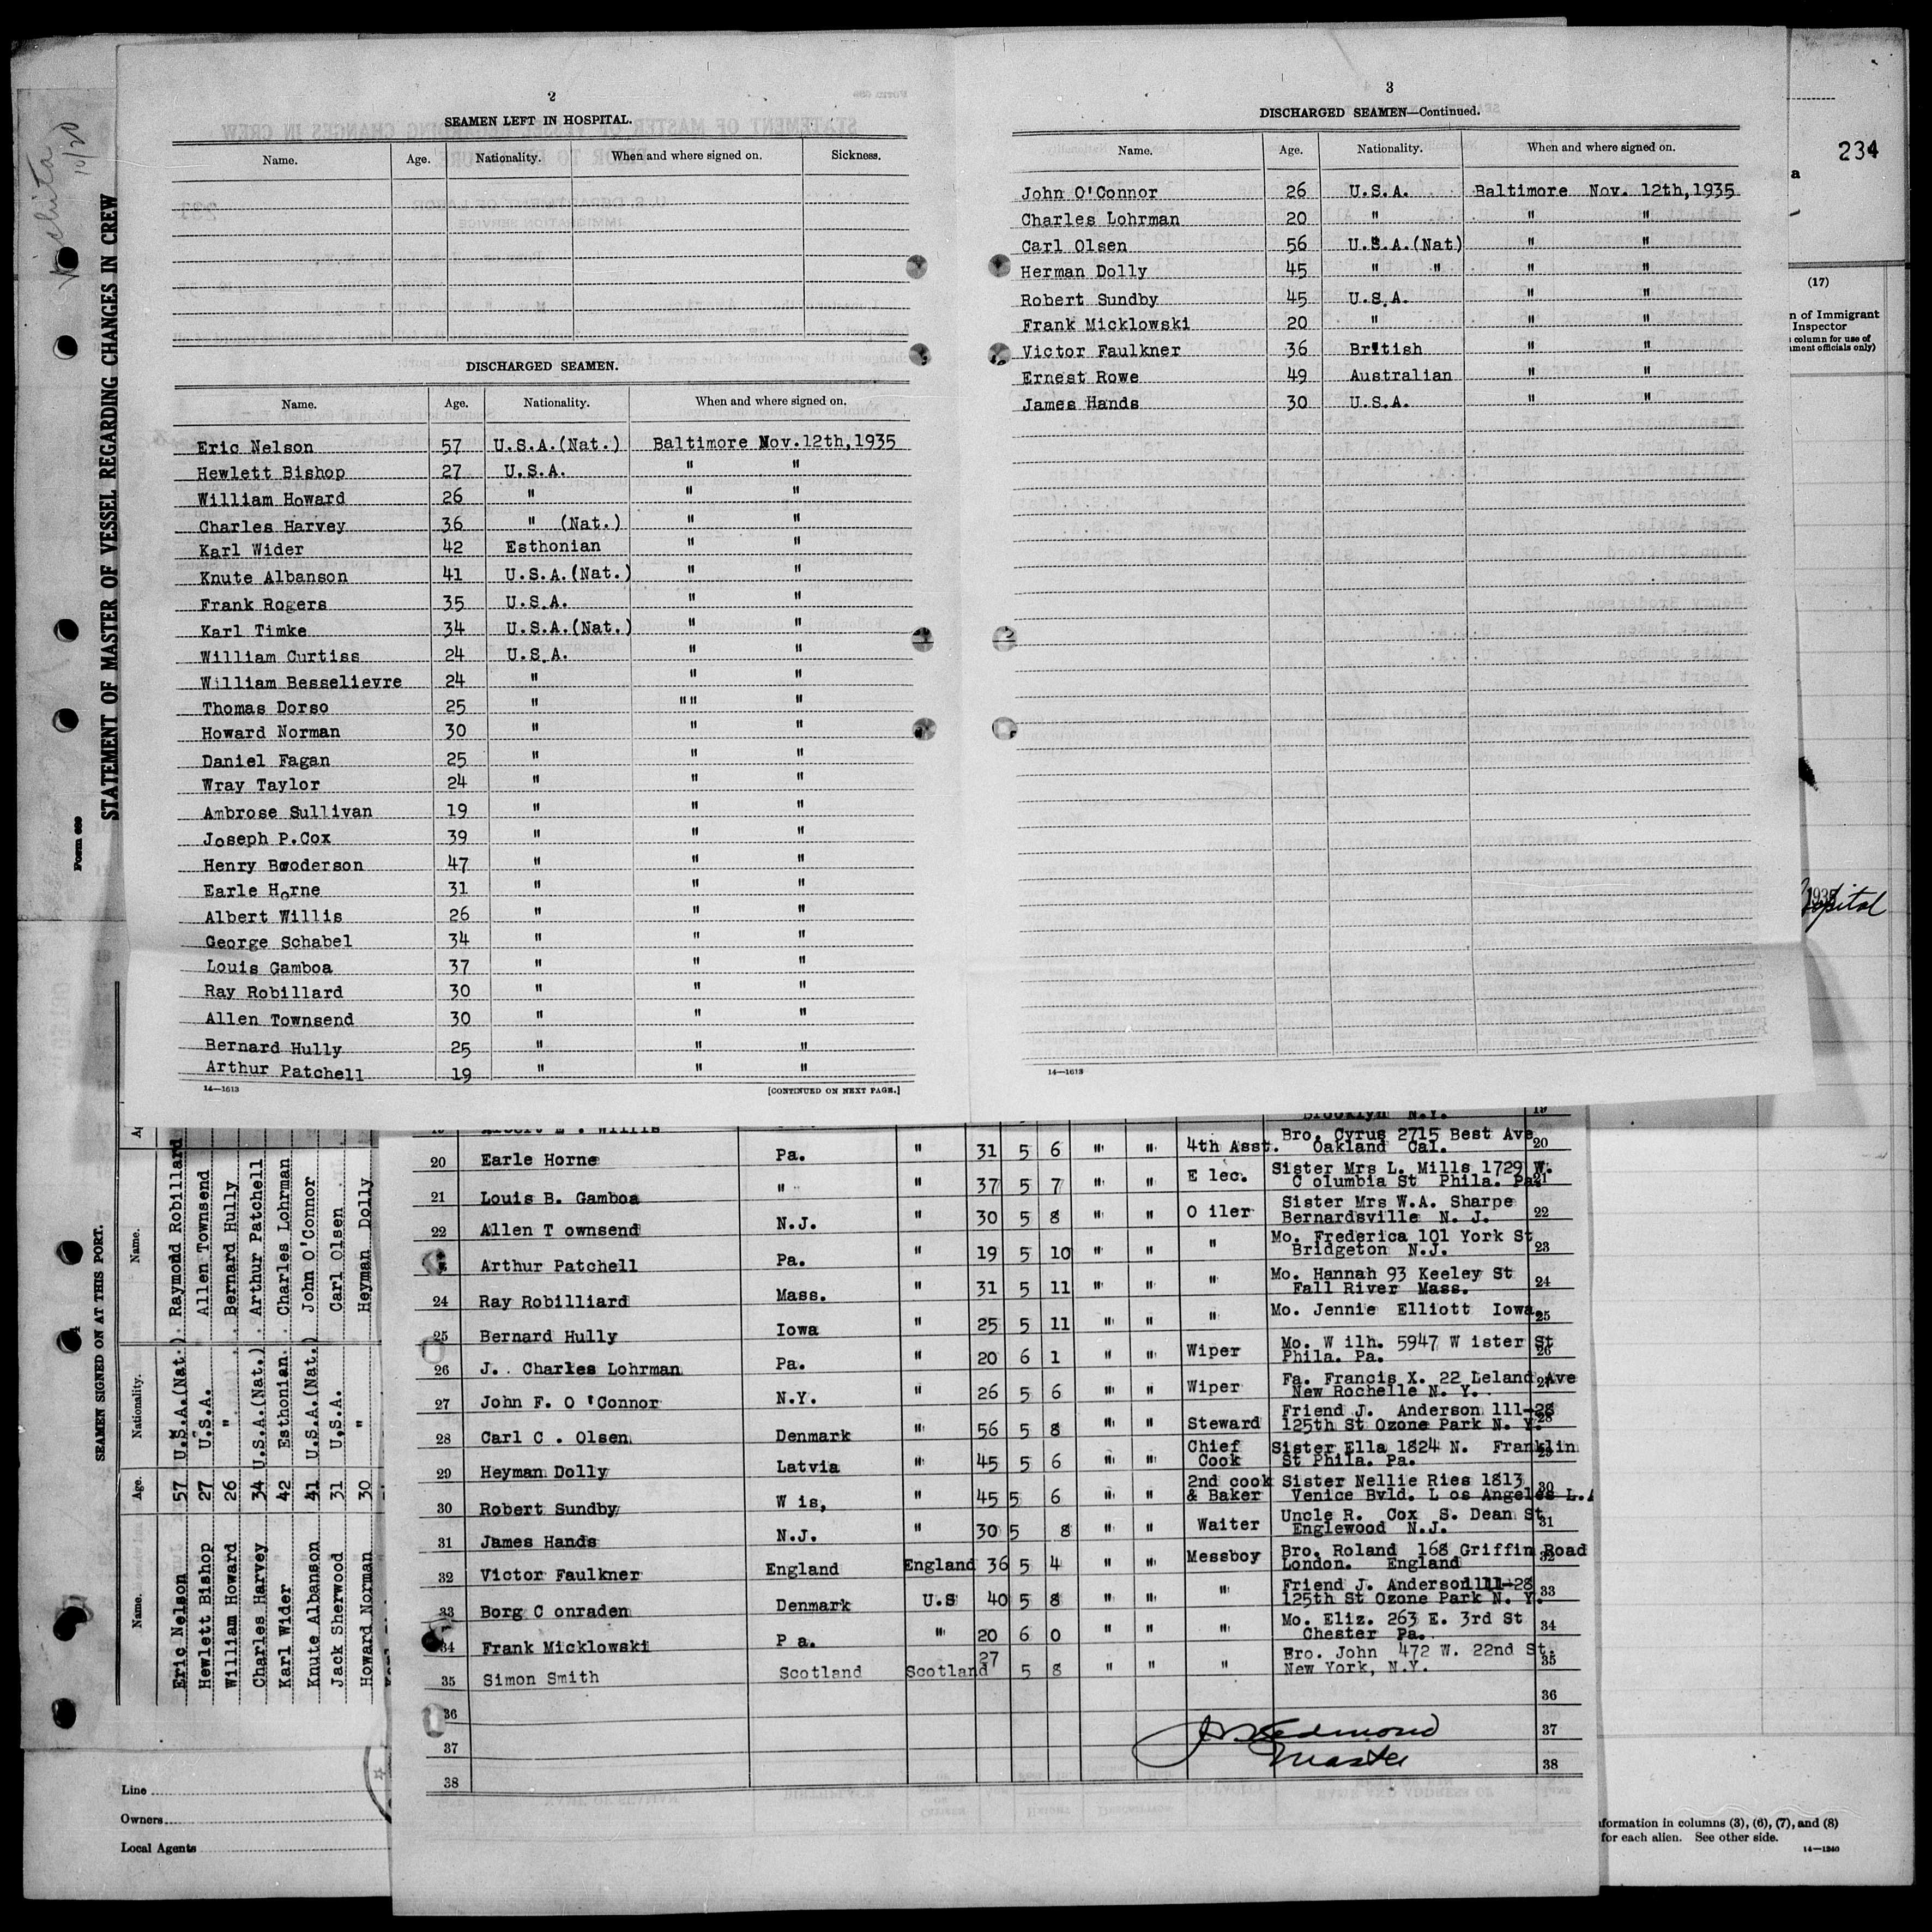 2
SEAMEN LEFT IN HOSPITAL.
Name. Age. Nationality. When and where signed on. Sickness.
DISCHARGED SEAMEN.
Name. Age. Nationality. When and where signed on.
Eric Nelson 57 U.S.A.(Nat.) Baltimore Nov.12th,1935
Hewlett Bishop 27 U.S.A. " "
William Howard 26 " " "
Charles Harvey 36 " (Nat.) " "
Karl Wider 42 Esthonian " "
Knute Albanson 41 U.S.A.(Nat.) " "
Frank Rogers 35 U.S.A. " "
Karl Timke 34 U.S.A.(Nat.) " "
William Curtiss 24 U.S.A. " "
William Besselievre 24 " " "
Thomas Dorso 25 " "" "
Howard Norman 30 " " "
Daniel Fagan 25 " " "
Wray Taylor 24 " " "
Ambrose Sullivan 19 " " "
Joseph P.Cox 39 " " "
Henry Booderson 47 " " "
Earle Horne 31 " " "
Albert Willis 26 " " "
George Schabel 34 " " "
Louis Gamboa 37 " " "
Ray Robillard 30 " " "
Allen Townsend 30 " " "
Bernard Hully 25 " " "
Arthur Patchell 19 " " "
14—1613 [CONTINUED ON NEXT PAGE.]
3
DISCHARGED SEAMEN—Continued.
Name. Age. Nationality. When and where signed on.
John O'Connor 26 U.S.A. Baltimore Nov. 12th,1935
Charles Lohrman 20 " " "
Carl Olsen 56 U.S.A.(Nat) " "
Herman Dolly 45 " " " "
Robert Sundby 45 U.S.A. " "
Frank Micklowski 20 " " "
Victor Faulkner 36 British " "
Ernest Rowe 49 Australian " "
James Hands 30 U.S.A. " "
14—1613
234
a
(17)
n of Immigrant
Inspector
column for use of
ment officials only)
1935
Hospital
Wichita
10/20
STATEMENT OF MASTER OF VESSEL REGARDING CHANGES IN CREW
Form 689
SEAMEN SIGNED ON AT THIS PORT.
Name. Age. Nationality. Name.
Eric Nelson 57 U.S.A.(Nat.) Raymond Robillard
Hewlett Bishop 27 U.S.A. Allen Townsend
William Howard 26 " Bernard Hully
Charles Harvey 34 U.S.A.(Nat.) Arthur Patchell
Karl Wider 42 Esthonian Charles Lohrman
Knute Albanson 41 U.S.A.(Nat.) John O'Connor
Jack Sherwood 31 U.S.A. Carl Olsen
Howard Norman 30 " Heyman Dolly
Brooklyn N.Y. 19
Albert E. Willis
20 Earle Horne Pa. " 31 5 6 " " 4th Asst. Bro. Cyrus 2715 Best Ave 20
Oakland Cal.
21 Louis B. Gamboa " " 37 5 7 " " E lec. Sister Mrs L. Mills 1729 W.
C olumbia St Phila. Pa. 21
22 Allen T ownsend N.J. " 30 5 8 " " O iler Sister Mrs W.A. Sharpe 22
Bernardsville N. J.
Arthur Patchell Pa. " 19 5 10 " " " Mo. Frederica 101 York St 23
Bridgeton N.J.
24 Ray Robilliard Mass. " 31 5 11 " " " Mo. Hannah 93 Keeley St 24
Fall River Mass.
25 Bernard Hully Iowa " 25 5 11 " " " Mo. Jennie Elliott Iowa. 25
26 J. Charles Lohrman Pa. " 20 6 1 " " Wiper Mo. W ilh. 5947 W ister St 26
Phila. Pa.
27 John F. O 'Connor N.Y. " 26 5 6 " " Wiper Fa. Francis X. 22 Leland Ave 27
New Rochelle N. Y.
28 Carl C . Olsen Denmark " 56 5 8 " " Steward Friend J. Anderson 111-28 28
125th St Ozone Park N. Y.
29 Heyman Dolly Latvia " 45 5 6 " " Chief Cook Sister Ella 1824 N. Franklin 29
St Phila. Pa.
30 Robert Sundby W is, " 45 5 6 " " 2nd cook & Baker Sister Nellie Ries 1813 30
Venice Bvld. L os Angeles L.A
31 James Hands N.J. " 30 5 8 " " Waiter Uncle R. Cox S. Dean St 31
Englewood N.J.
32 Victor Faulkner England England 36 5 4 " " Messboy Bro. Roland 168 Griffin Road 32
London. England
33 Borg C onraden Denmark U.S 40 5 8 " " " Friend J. Anderson 111-28 33
125th St Ozone Park N. Y.
34 Frank Micklowski P a. " 20 6 0 " " " Mo. Eliz. 263 E. 3rd St 34
Chester Pa.
35 Simon Smith Scotland Scotland 27 5 8 " " " Bro. John 472 W. 22nd St. 35
New York, N.Y.
36 36
37 37
38 38
Redmond
Master
Line
Owners
Local Agents
nformation in columns (3), (6), (7), and (8)
for each alien. See other side.
14—1240